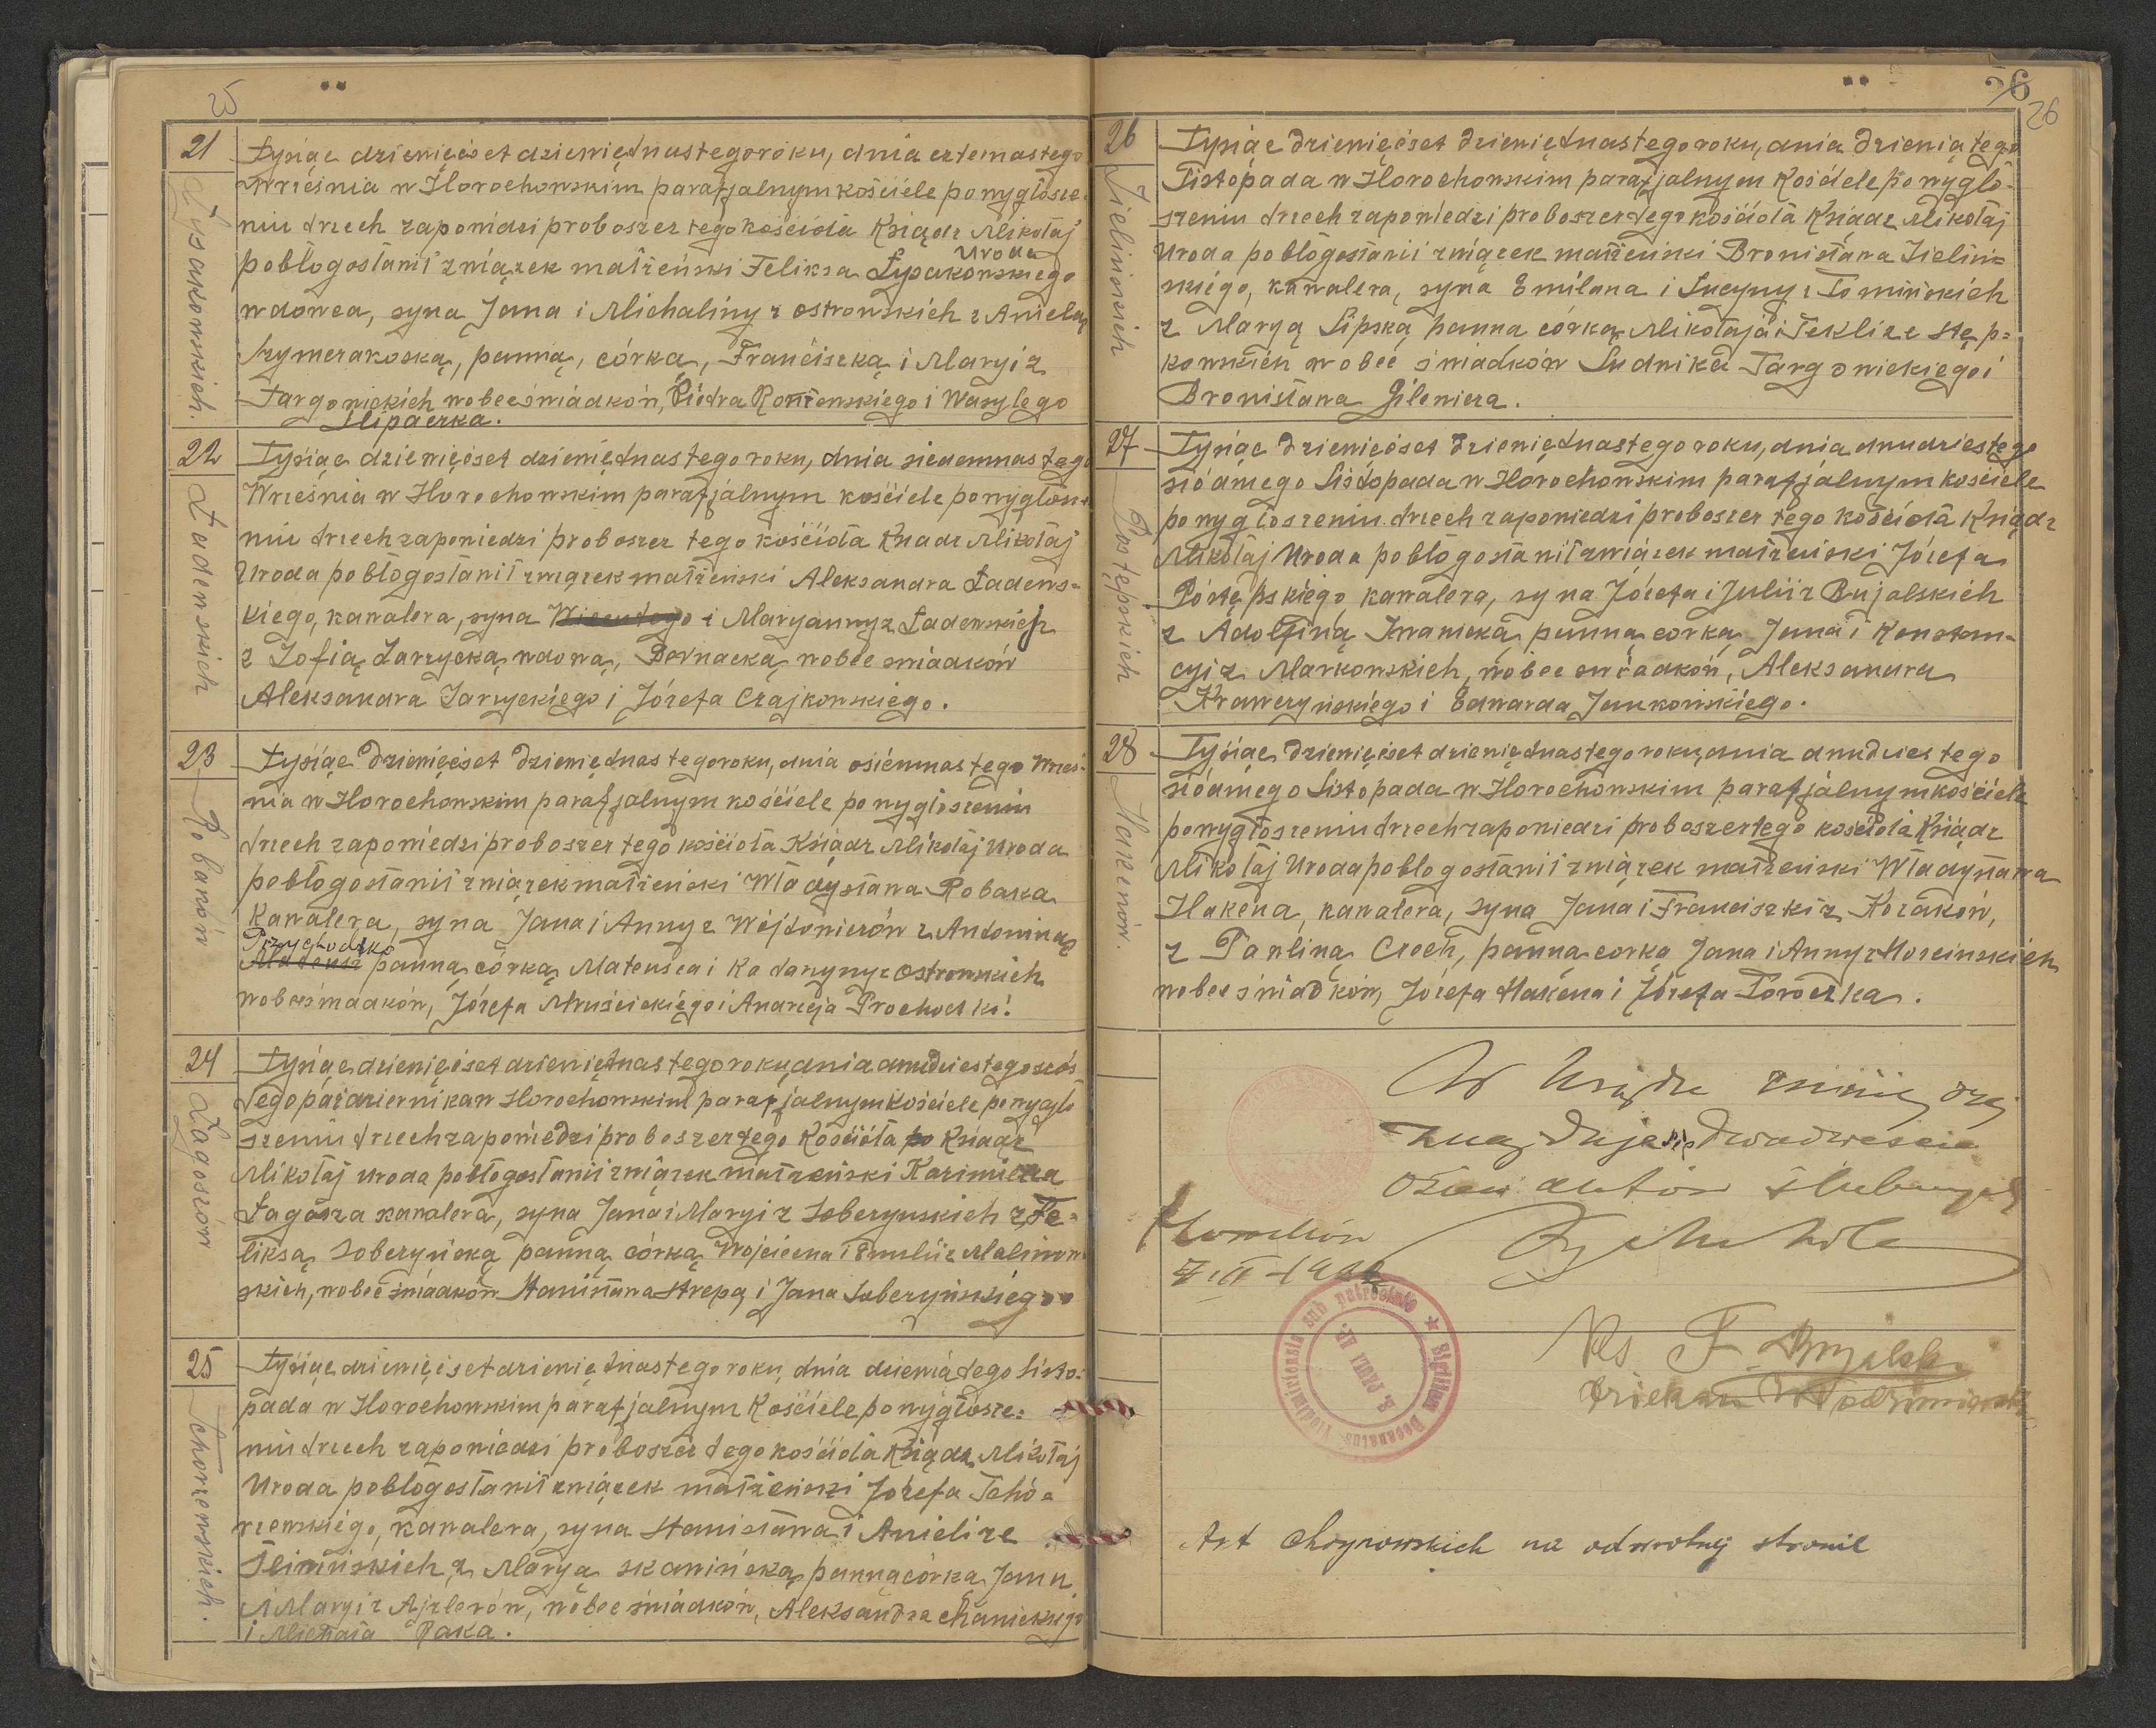 25
21
Łysakowskich.
Tysiąc dziewięćset dziewiętnastego roku, dnia czternastego
Września w Horochowskim parafjalnym kościele po wygłosze-
niu trzech zapowiedzi proboszcz tego kościoła Ksiądz Mikołaj
Uroda
pobłogosławił związek małżeński Feliksa Łysakowskiego
wdowca, syna Jana i Michaliny z Ostrowskich z Anielą
Szymerakoską, panną, córką, Franciszką i Maryi z
Targonickich wobec świadków, Piotra Rontenskiego i Wasylego
Slipaczka.
22
Ładenskich
Tysiąc dziewięćset dziewiętnastego roku, dnia siedemnastego
Września w Horochowskim parafjalnym kościele po wygłosze-
niu trzech zapowiedzi proboszcz tego kościoła Ksiadz Mikołaj
Uroda pobłogosławił związek małżeński Aleksandra Ładens=
kiego, kawalera, syna Wicentego i Maryanny z Ładenskich
z Zofią Zarzycką, wdową, Bernacką wobec swiadków
Aleksandra Zarzyckiego i Józefa Czajkowskiego.
23
Robaków
Tysiąc dziewięćset dziewiętnastego roku, dnia osiemnastego Wrześ-
nia w Horochowskim parafjalnym kościele po wygłoszeniu
trzech zapowiedzi proboszcz tego kościoła Ksiądz Mikołaj Uroda
pobłogosławił związek małżeński Władysława Robaka
kawalera, syna Jana i Anny z Wójtowiczów z Antoniną
Przychodzko
Mateusz panną, córką Mateusza i Katarzyny z Ostrowskich
wobec świadków, Józefa Mruścickiego i Andrzeja Prochockí.
24
Łagoszów
Tysiąc dziewięćset dziewiętnastego roku, dnia dwudziestego szós
tego pazdziernika w Horochowskim parafjalnym kościele po wygło
szeniu trzech zapowiedzi proboszcz tego kościoła po Ksiądz
Mikołaj Uroda pobłogosławił związek małżeński Kazimierza
Łagosza kawalera, syna Jana i Maryi z Soberynskich z Fe=
liksą Soberyńską panną córką Wojciecha i Emilii z Malinow
skich, wobec świadków Stanisława Strepą i Jana Soberyńskiego
25
Tchorzewskich.
Tysiąc dziewięćset dziewiętnastego roku, dnia dziewiątego Listo-
pada w Horochowskim parafjalnym kościele po wygłosze-
niu trzech zapowiedzi proboszcz tego kościoła Ksiądz Mikołaj
Uroda pobłogosławił związek małżeński Józefa Tchó=
rzewskiego, kawalera, syna Stanisława i Anieli ze
Śliwińskich z Maryą Skawińską panną córką Jana
i Maryi z Ajzlerów, wobec świadków, Aleksandra Chanickiego
i Michała Raka.
26
26
26
Zielińskich
Tysiąc dziewięćset dziewiętnastego roku, dnia dziewiątego
Listopada w Horochowskim parafjalnym kościele po wygło-
szeniu trzech zapowiedzi proboszcz tego kościoła Ksiądz Mikołaj
Uroda pobłogosławił związek małżeński Bronisława Zieliń=
skiego, kawalera, syna Emilana i Lucyny z Tomińskich
z Maryą Lipską panną córką Mikołaja i Tekli ze Stęp=
kowskich wobec świadków Ludwika Targonickiego i
Bronisława Gilewicza.
27
Postępskich
Tysiąc dziewięćset dziewiętnastego roku, dnia dwudziestego
siódmego Listopada w Horochowskim parafjalnym kościele
po wygłoszeniu trzech zapowiedzi proboszcz tego kościoła Ksiądz
Mikołaj Uroda pobłogosławił związek małżeński Józefa
Postępskiego kawalera, syna Józefa i Julii z Bujalskich
z Adolfiną Iwanicką panną corką Jana i Konstan-
cyi z Markowskich, wobec swiadków, Aleksandra
Krawczyńskiego i Edwarda Jankowskiego.
28
Hakenów.
Tysiąc dziewięćset dziewiętnastego roku, dnia dwudziestego
siódmego Listopada w Horochowskim parafjalnym kościele
po wygłoszeniu trzech zapowiedzi proboszcz tego kościoła Ksiądz
Mikołaj Uroda pobłogosławił związek małżeński Władysława
Hakena, kawalera, syna Jana i Franciszki z Kozaków,
z Pauliną Czech, panną corką Jana i Anny z Horcinskich
wobec świadków, Józefa Hakena i Józefa Toroczka.
W księdze niniejszej
znajduje się dwadzieścia
osiem aktów ślubnych
Ks F.
Dziekan Włodzimierski
Sigillum Decanatus Vlodimiriensis sub patrocinio
S. PAULI AP.
Akt Chrynowskich na odwrotnej stronie